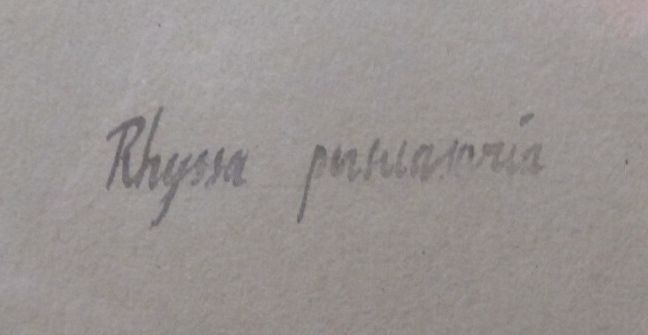 Rhyssa persuasoria